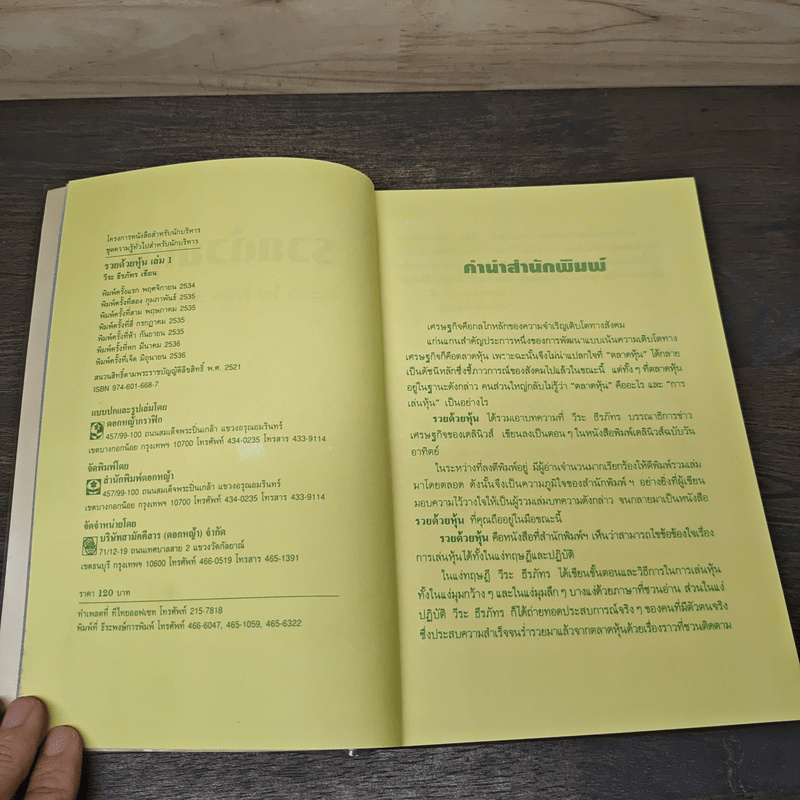 โครงการหนังสือสำหรับนักบริหาร
ชุดความรู้ทั่วไปสำหรับนักบริหาร
รวยด้วยหุ้น เล่ม 1
วีระ ธีรภัทร เขียน
พิมพ์ครั้งแรก พฤศจิกายน 2534
พิมพ์ครั้งที่สอง กุมภาพันธ์ 2535
พิมพ์ครั้งที่สาม พฤษภาคม 2535
พิมพ์ครั้งที่สี่ กรกฎาคม 2535
พิมพ์ครั้งที่ห้า กันยายน 2535
พิมพ์ครั้งที่หก มีนาคม 2536
พิมพ์ครั้งที่เจ็ด มิถุนายน 2536
สงวนสิทธิ์ตามพระราชบัญญัติลิขสิทธิ์ พ.ศ. 2521
ISBN 974-601-668-7
แบบปกและรูปเล่มโดย
ดอกหญ้ากราฟิก
457/99-100 ถนนสมเด็จพระปิ่นเกล้า แขวงอรุณอมรินทร์
เขตบางกอกน้อย กรุงเทพฯ 10700 โทรศัพท์ 434-0235 โทรสาร 433-9114
จัดพิมพ์โดย
สำนักพิมพ์ดอกหญ้า
457/99-100 ถนนสมเด็จพระปิ่นเกล้า แขวงอรุณอมรินทร์
เขตบางกอกน้อย กรุงเทพฯ 10700 โทรศัพท์ 434-0235 โทรสาร 433-9114
จัดจำหน่ายโดย
บริษัทสามัคคีสาร (ดอกหญ้า) จำกัด
71/12-19 ถนนเทศบาลสาย 2 แขวงวัดกัลยาณ์
เขตธนบุรี กรุงเทพฯ โทรศัพท์ 466-0519 โทรสาร 465-1391
ราคา 120 บาท
ทำเพลตที่ ทีไทยออฟเซท โทรศัพท์ 215-7818
พิมพ์ที่ ธีระพงษ์การพิมพ์ โทรศัพท์ 466-6047, 465-1059, 465-6322
คำนำสำนักพิมพ์
เศรษฐกิจคือกลไกหลักของความจำเริญเติบโตทางสังคม
แก่นแกนสำคัญประการหนึ่งของการพัฒนาแบบเน้นความเติบโตทาง
เศรษฐกิจก็คือตลาดหุ้น เพราะฉะนั้นจึงไม่น่าแปลกใจที่ "ตลาดหุ้น" ได้กลาย
เป็นดัชนีหลักซึ่งชี้ภาวการณ์ของสังคมไปแล้วในขณะนี้ แต่ทั้ง ๆ ที่ตลาดหุ้น
อยู่ในฐานะดังกล่าว คนส่วนใหญ่กลับไม่รู้ว่า "ตลาดหุ้น" คืออะไร และ "การ
เล่นหุ้น" เป็นอย่างไร
รวยด้วยหุ้น ได้รวมเอาบทความที่ วีระ ธีรภัทร บรรณาธิการข่าว
เศรษฐกิจของเดลินิวส์ เขียนลงเป็นตอน ๆ ในหนังสือพิมพ์เดลินิวส์ฉบับวัน
อาทิตย์
ในระหว่างที่ลงตีพิมพ์อยู่ มีผู้อ่านจำนวนมากเรียกร้องให้ตีพิมพ์รวมเล่ม
มาโดยตลอด ดังนั้นจึงเป็นความภูมิใจของสำนักพิมพ์ ฯ อย่างยิ่งที่ผู้เขียน
มอบความไว้วางใจให้เป็นผู้รวมเล่มบทความดังกล่าว จนกลายมาเป็นหนังสือ
รวยด้วยหุ้น ที่คุณถืออยู่ในมือขณะนี้
รวยด้วยหุ้น คือหนังสือที่สำนักพิมพ์ฯ เห็นว่าสามารถไขข้อข้องใจเรื่อง
การเล่นหุ้นได้ทั้งในแง่ทฤษฎีและปฏิบัติ
ในแง่ทฤษฎี วีระ ธีรภัทร ได้เขียนขั้นตอนและวิธีการในการเล่นหุ้น
ทั้งในแง่มุมกว้างๆ และในแง่มุมลึกๆ บางแง่ด้วยภาษาที่ชวนอ่าน ส่วนในแง่
ปฏิบัติ วีระ ธีรภัทร ก็ได้ถ่ายทอดประสบการณ์จริงๆ ของคนที่มีตัวตนจริง
ซึ่งประสบความสำเร็จจนร่ำรวยมาแล้วจากตลาดหุ้นด้วยเรื่องราวที่ชวนติดตาม